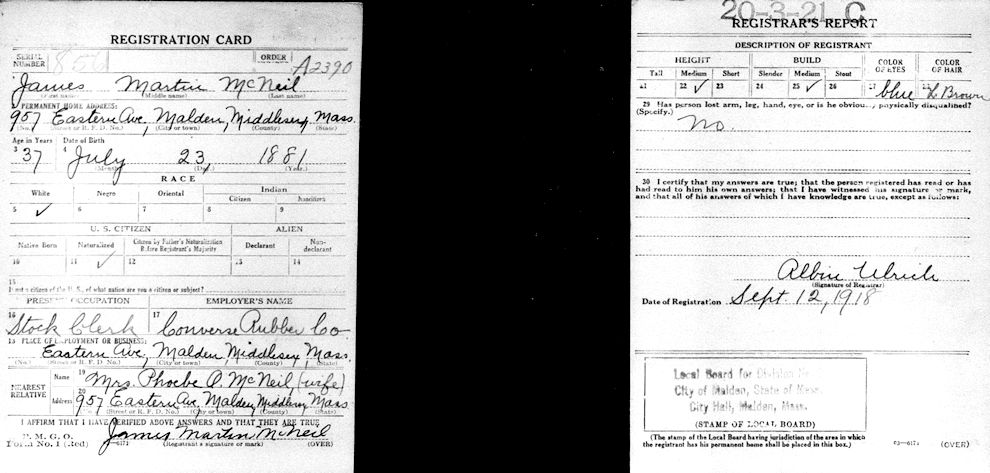 REGISTRATION CARD
SERIAL NUMBER 856 ORDER A2390
James Martin McNeil
(First name) (Middle name) (Last name)
2 PERMANENT HOME ADDRESS:
957 Eastern Ave, Malden, Middlesex, Mass.
(No.) (Street or R. F. D. No.) (City or town) (County) (State)
Age in Years Date of Birth
3 37 4 July 23, 1881
(Month) (Day) (Year)
RACE
White Negro Oriental Indian
Citizen Noncitizen
5 ✓ 6 7 8 9
U. S. CITIZEN ALIEN
Native Born Naturalized Citizen by Father's Naturalization Before Registrant's Majority Declarant Non-declarant
10 11 ✓ 12 13 14
15
If not a citizen of the U. S., of what nation are you a citizen or subject?
PRESENT OCCUPATION EMPLOYER'S NAME
16 Stock Clerk 17 Converse Rubber Co
18 PLACE OF EMPLOYMENT OR BUSINESS:
Eastern Ave, Malden, Middlesex, Mass.
(No.) (Street or R. F. D. No.) (City or town) (County) (State)
NEAREST RELATIVE Name 19 Mrs. Phoebe A. McNeil, (wife)
Address 20 957 Eastern Ave, Malden, Middlesex, Mass
(No.) (Street or R. F. D. No.) (City or town) (County) (State)
I AFFIRM THAT I HAVE VERIFIED ABOVE ANSWERS AND THAT THEY ARE TRUE
P. M. G. O.
Form No. 1 (Red) James Martin McNeil
03-6171 (Registrant's signature or mark) (OVER)
20-3-21 C
REGISTRAR'S REPORT
DESCRIPTION OF REGISTRANT
HEIGHT BUILD COLOR OF EYES COLOR OF HAIR
Tall Medium Short Slender Medium Stout
21 22 ✓ 23 24 25 ✓ 26 27 blue 28 L Brown
29 Has person lost arm, leg, hand, eye, or is he obviously physically disqualified?
(Specify.) No.
30 I certify that my answers are true; that the person registered has read or has
had read to him his own answers; that I have witnessed his signature or mark,
and that all of his answers of which I have knowledge are true, except as follows:
Albin Ulrich
(Signature of Registrar)
Date of Registration Sept. 12, 1918
Local Board for Division No
City of Malden, State of Mass.
City Hall, Malden, Mass.
(STAMP OF LOCAL BOARD)
(The stamp of the Local Board having jurisdiction of the area in which
the registrant has his permanent home shall be placed in this box.)
03-6171 (OVER)